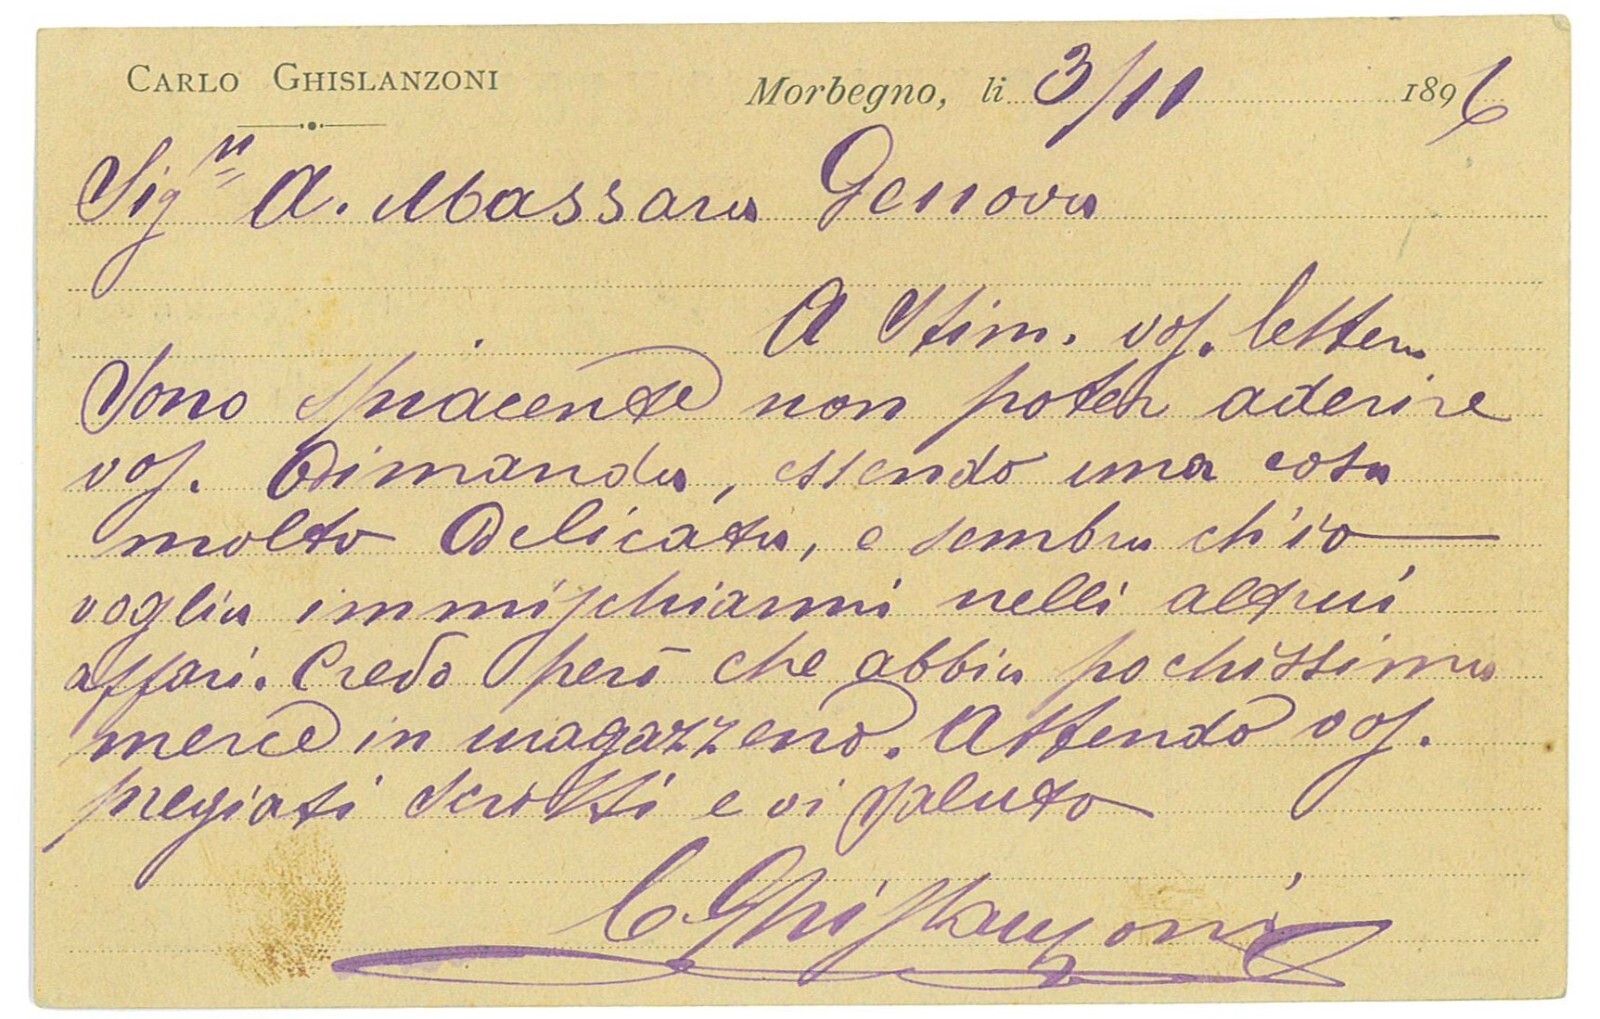 CARLO GHISLANZONI
Morbegno, li 3/11 1896
Sigr A. Massara Genova
A Stim. vos. lettera
Sono spiacente non poter aderire
vos. Dimanda, essendo una cosa
molto Delicata, e sembra ch'io
voglia immischiarmi nelli altrui
affari. Credo però che abbia pochissima
merce in magazzeno. Attendo vos.
pregiati scritti e vi saluto
C Ghislanzoni